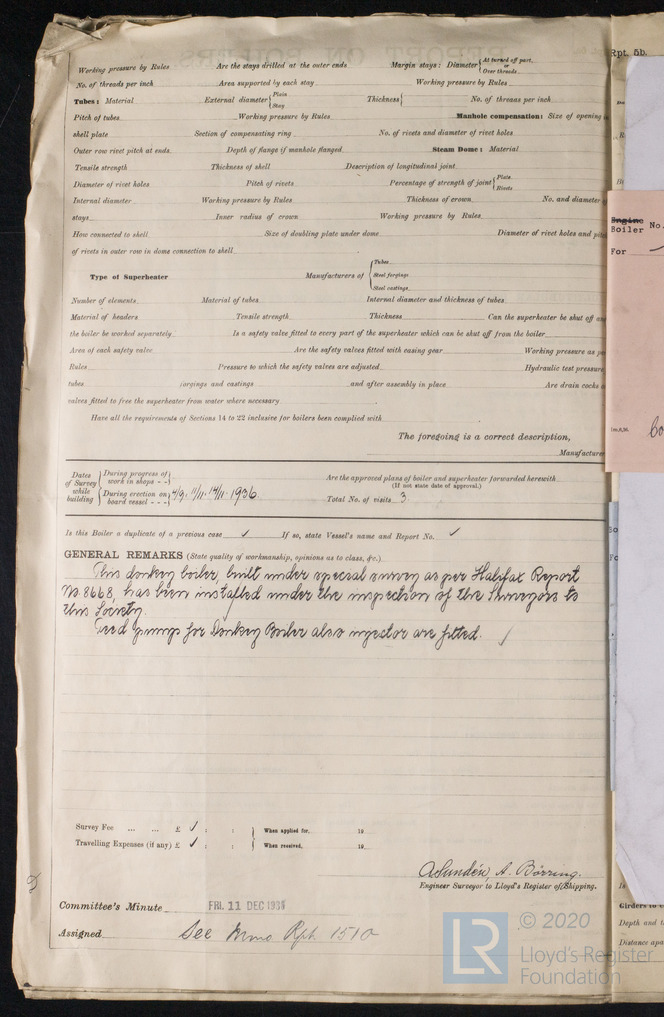 Rpt. 5b.
Working pressure by Rules Are the stays drilled at the outer ends Margin stays: Diameter { At turned off part, or Over threads
No. of threads per inch Area supported by each stay Working pressure by Rules
Tubes: Material External diameter { Plain Stay Thickness { No. of threads per inch
Pitch of tubes Working pressure by Rules Manhole compensation: Size of opening
shell plate Section of compensating ring No. of rivets and diameter of rivet holes
Outer row rivet pitch at ends Depth of flange if manhole flanged Steam Dome: Material
Tensile strength Thickness of shell Description of longitudinal joint
Diameter of rivet holes Pitch of rivets Percentage of strength of joint { Plate Rivets
Internal diameter Working pressure by Rules Thickness of crown No. and diameter
stays Inner radius of crown Working pressure by Rules
How connected to shell Size of doubling plate under dome Diameter of rivet holes and
of rivets in outer row in dome connection to shell
Type of Superheater Manufacturers of { Tubes Steel forgings Steel castings
Number of elements Material of tubes Internal diameter and thickness of tubes
Material of headers Tensile strength Thickness Can the superheater be shut off
the boiler be worked separately Is a safety valve fitted to every part of the superheater which can be shut off from the boiler
Area of each safety valve Are the safety valves fitted with easing gear Working pressure as
Rules Pressure to which the safety valves are adjusted Hydraulic test pressure
tubes forgings and castings and after assembly in place Are drain cocks
valves fitted to free the superheater from water where necessary
Have all the requirements of Sections 14 to 22 inclusive for boilers been complied with
The foregoing is a correct description,
Manufacturer
Dates of Survey while building { During progress of work in shops - - { Are the approved plans of boiler and superheater forwarded herewith
(If not state date of approval.)
During erection on board vessel - - - { 4/9. 11/11. 14/11. 1936 Total No. of visits 3.
Is this Boiler a duplicate of a previous case ✓ If so, state Vessel's name and Report No. ✓
GENERAL REMARKS (State quality of workmanship, opinions as to class, &c.)
This donkey boiler, built under special survey as per Halifax Report
No. 8668, has been installed under the inspection of the Surveyors to
this Society.
Feed pumps for Donkey Boiler also injector are fitted.
Survey Fee ... ... £ ✓ : : When applied for, 19
Travelling Expenses (if any) £ ✓ : : When received, 19
A Sundén, A. Börring.
Engineer Surveyor to Lloyd's Register of Shipping.
Committee's Minute FRI. 11 DEC 1936
Assigned See Rpt. 1510
Engine
Boiler No.
For
Girders to
Depth and
Distance
LR © 2020
Lloyd's Register
Foundation